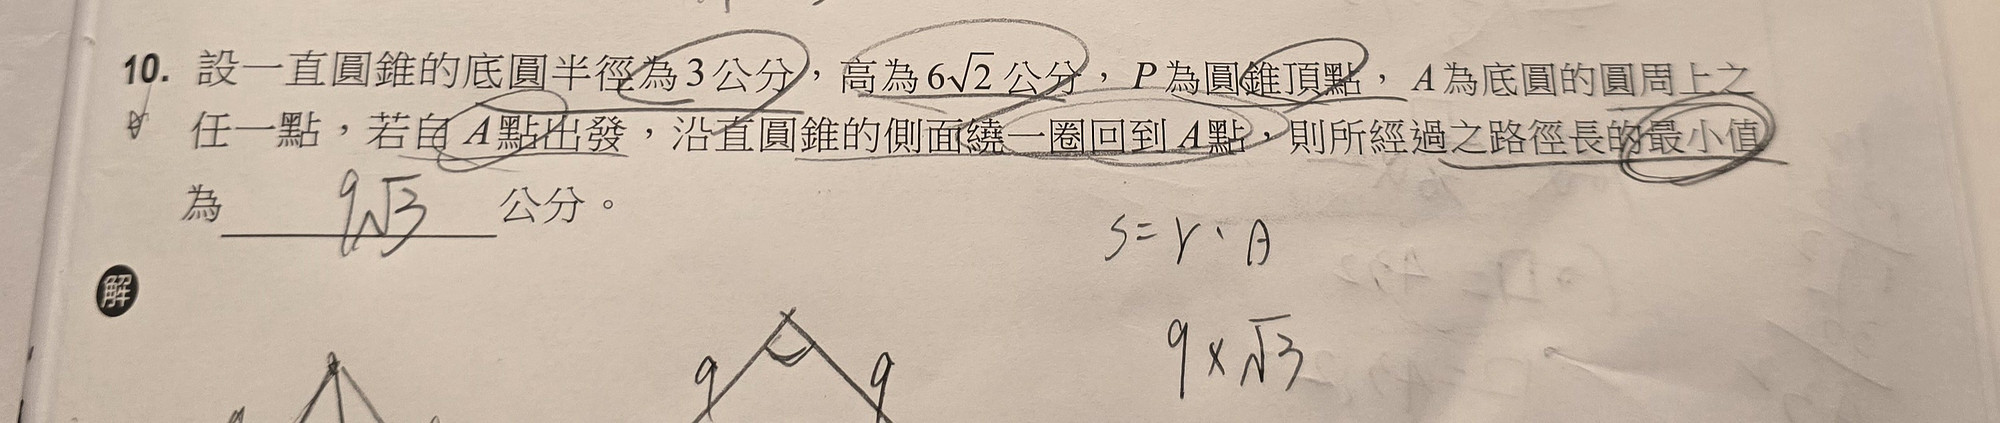 10. 設一直圓錐的底圓半徑為3公分，高為6√2公分，P為圓錐頂點，A為底圓的圓周上之
任一點，若自A點出發，沿直圓錐的側面繞一圈回到A點，則所經過之路徑長的最小值
為 9√3 公分。
S=r·θ
解
9×√3
9 9